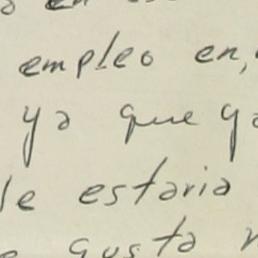 en
empleo en,
ya que ya
le estaria
gusta